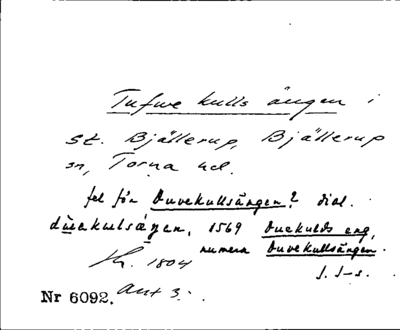 Tufwe kulls ängen i
St. Bjällerup, Bjällerup
sn, Torna hd.
fel för Duvekullsängen? dial.
1569 Duekulds eng,
numera Duvekullsängen.
1804
J. S-s.
Nr 6092. Ant 3.